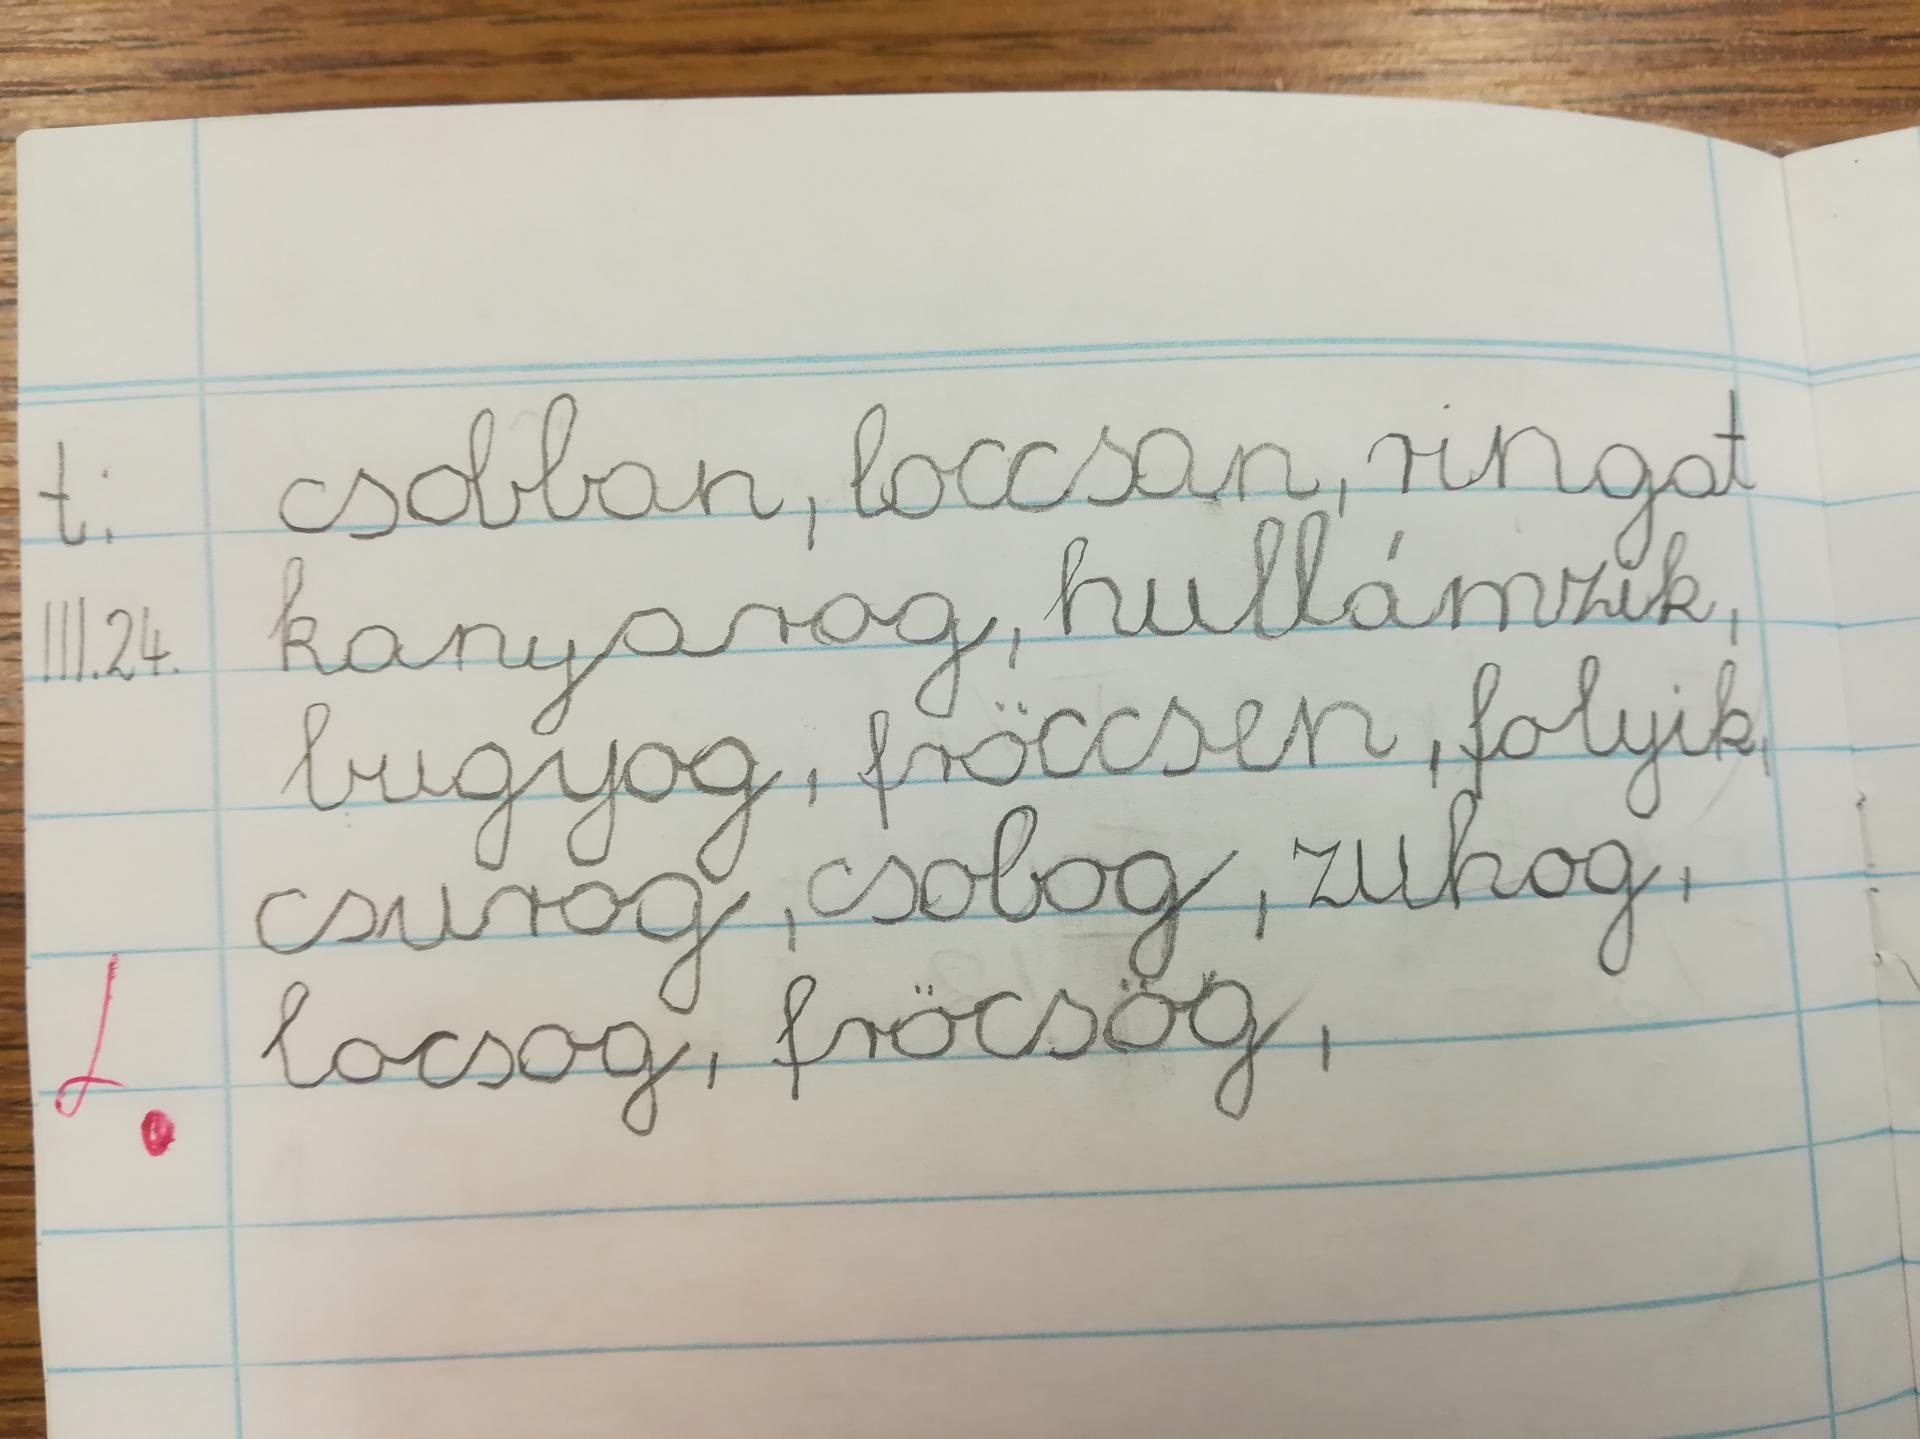 t. csobban, loccsan, ringat
III.24. kanyarog, hullámzik,
bugyog, fröccsen, folyik,
csurog, csobog, zuhog,
locsog, fröcsög,